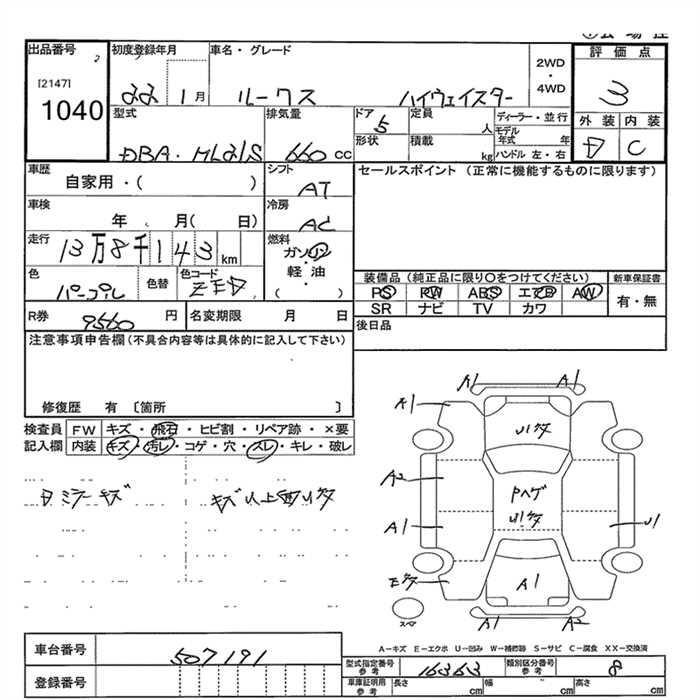 出品番号
2
[2147]
1040
初度登録年月
22 1月
車名・グレード
ルークス ハイウェイスター
2WD
・
4WD
評価点
3
外装 内装
D C
型式
DBA・ML21S
排気量
660 cc
ドア
5
形状
定員
人
積載
kg
ディーラー・並行
モデル年式 年
ハンドル 左・右
車歴
自家用・( )
シフト
AT
車検
年 月( 日)
冷房
AC
走行
13万8千143km
燃料
ガソリン
軽・油
・
( )
色
パープル
色替
色コード
R券
9560 円
名変期限 月 日
セールスポイント (正常に機能するものに限ります)
装備品(純正品に限り○をつけてください)
PS PW ABS エアB AW
SR ナビ TV カワ
新車保証書
有・無
後日品
注意事項申告欄(不具合内容等は具体的に記入して下さい)
修復歴 有 〔箇所 〕
検査員
記入欄
FW キズ・飛石・ヒビ割・リペア跡・×要
内装 キズ・汚レ・コゲ・穴・スレ・キレ・破レ
A1 A1
A1
A2
A1
U1
A1
A1 A2
スペア
A-キズ E-エクボ U-凹み W-補修跡 S-サビ C-腐食 XX-交換済
車台番号
507191
登録番号
型式指定番号
参考
16363
類別区分番号
参考
8
車庫証明用
参考
長さ cm 幅 cm 高さ cm